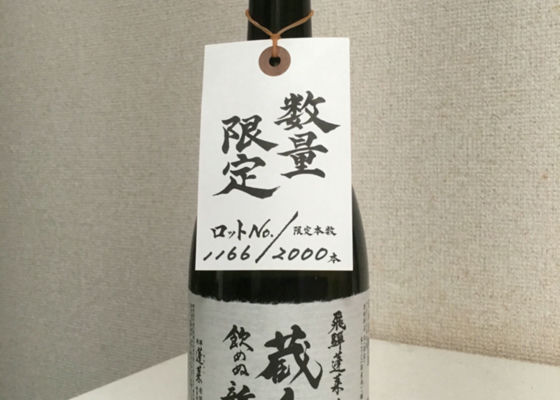 数量
限定
ロットNo./限定本数
1166/2000本
飛騨蓬莱
蔵
飲めぬ
蓬莱